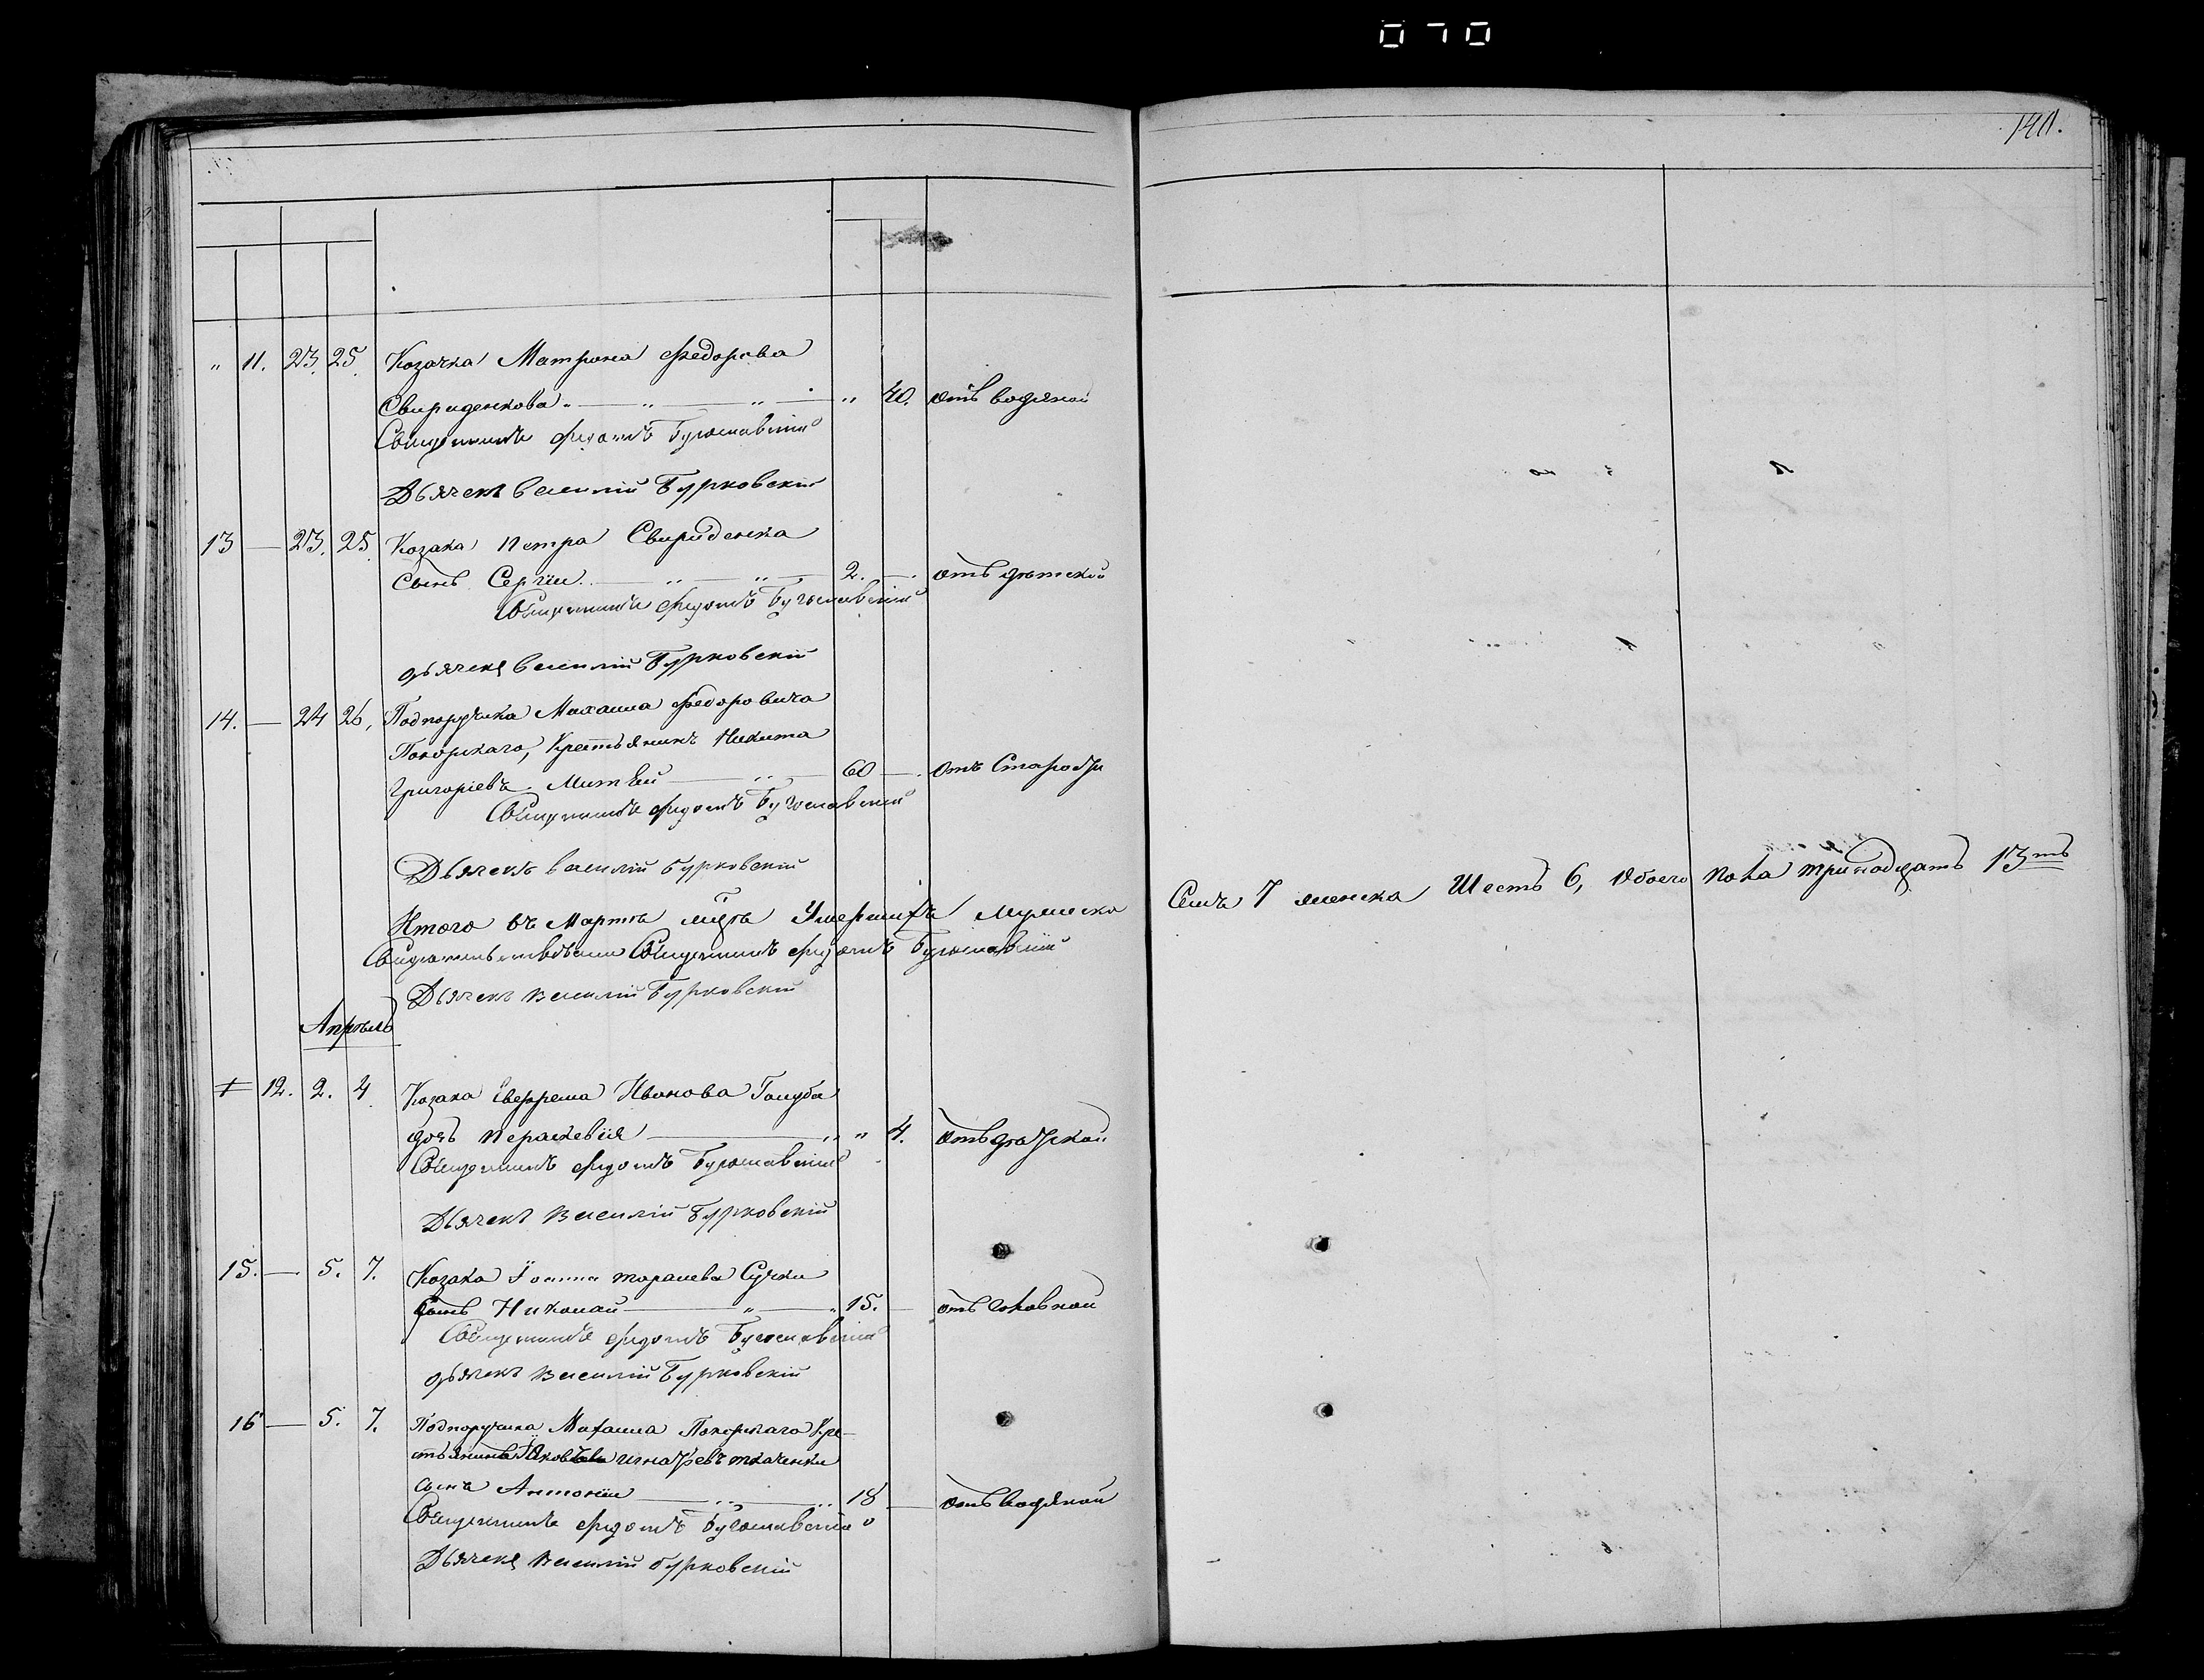 070
140.
" 11. 23. 25. Козачка Матрона Федорова
Свириденкова " — " — " — " 40. отъ водяной
Священникъ Федотъ Бугославскій
Дьячекъ Василій Бурковскій
13 — 23. 25. Козака Петра Свириденка
сынъ Сергіи — " — " — 2. — отъ дѣтской
Священникъ Федотъ Бугославскій
дьячекъ Василій Бурковскій
14. — 24 26, Подпоручика Михаила Федоровича
Покорскаго, Крестьянинъ Никита
Григоріевъ — " — 60 — отъ Старости
Священникъ Федотъ Бугославскій
Дьячекъ Василій Бурковскій
Итого въ Мартѣ мцѣ Умершихъ Мужеска Семъ 7 женска Шесть 6, Обоего пола тринадцать 13ть
Священникъ Федотъ Бугославскій
Дьячекъ Василій Бурковскій
Апрѣль
12. 2. 4. Козака Евфрема Иванова Голуба
дочь Параскевія — " " 4. отъ
Священникъ Федотъ Бугославскій
Дьячекъ Василій Бурковскій
15. — 5. 7. Козака Іоанна Тарасіева
сынъ Николай — " — " 15. — отъ
Священникъ Федотъ Бугославскій
дьячекъ Василій Бурковскій
16 — 5. 7. Подпоручика Михаила Покорскаго Кре-
стьянина Игнатіевъ Ткаченки
сынъ Антоніи — " — " 18 — отъ водяной
Священникъ Федотъ Бугославскій
Дьячекъ Василій Бурковскій